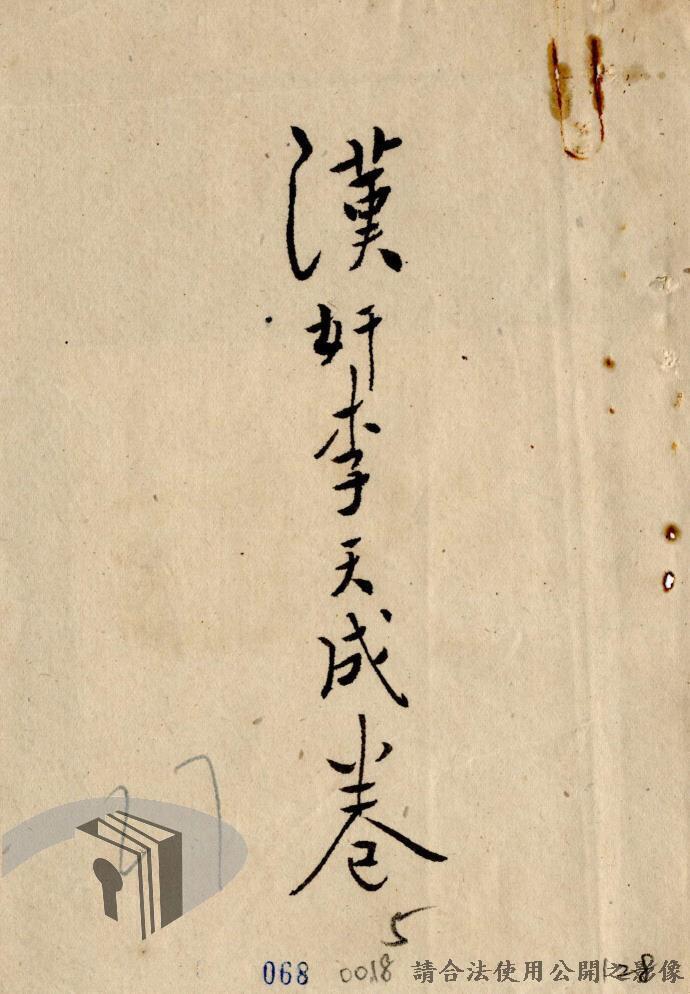 漢奸李天成卷
5
27
068 0018 請合法使用公開之影像 128